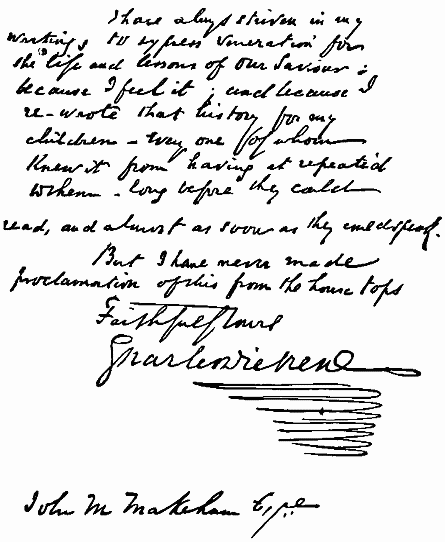 I have always striven in my
writings to express veneration for
the life and lessons of Our Saviour;
because I feel it; and because I
re-wrote that history for my
children – every one of whom
knew it from having it repeated
to them – long before they could
read, and almost as soon as they could speak.
But I have never made
proclamation of this from the house tops
Faithfully Yours
Charles Dickens
John M Makeham Esqre